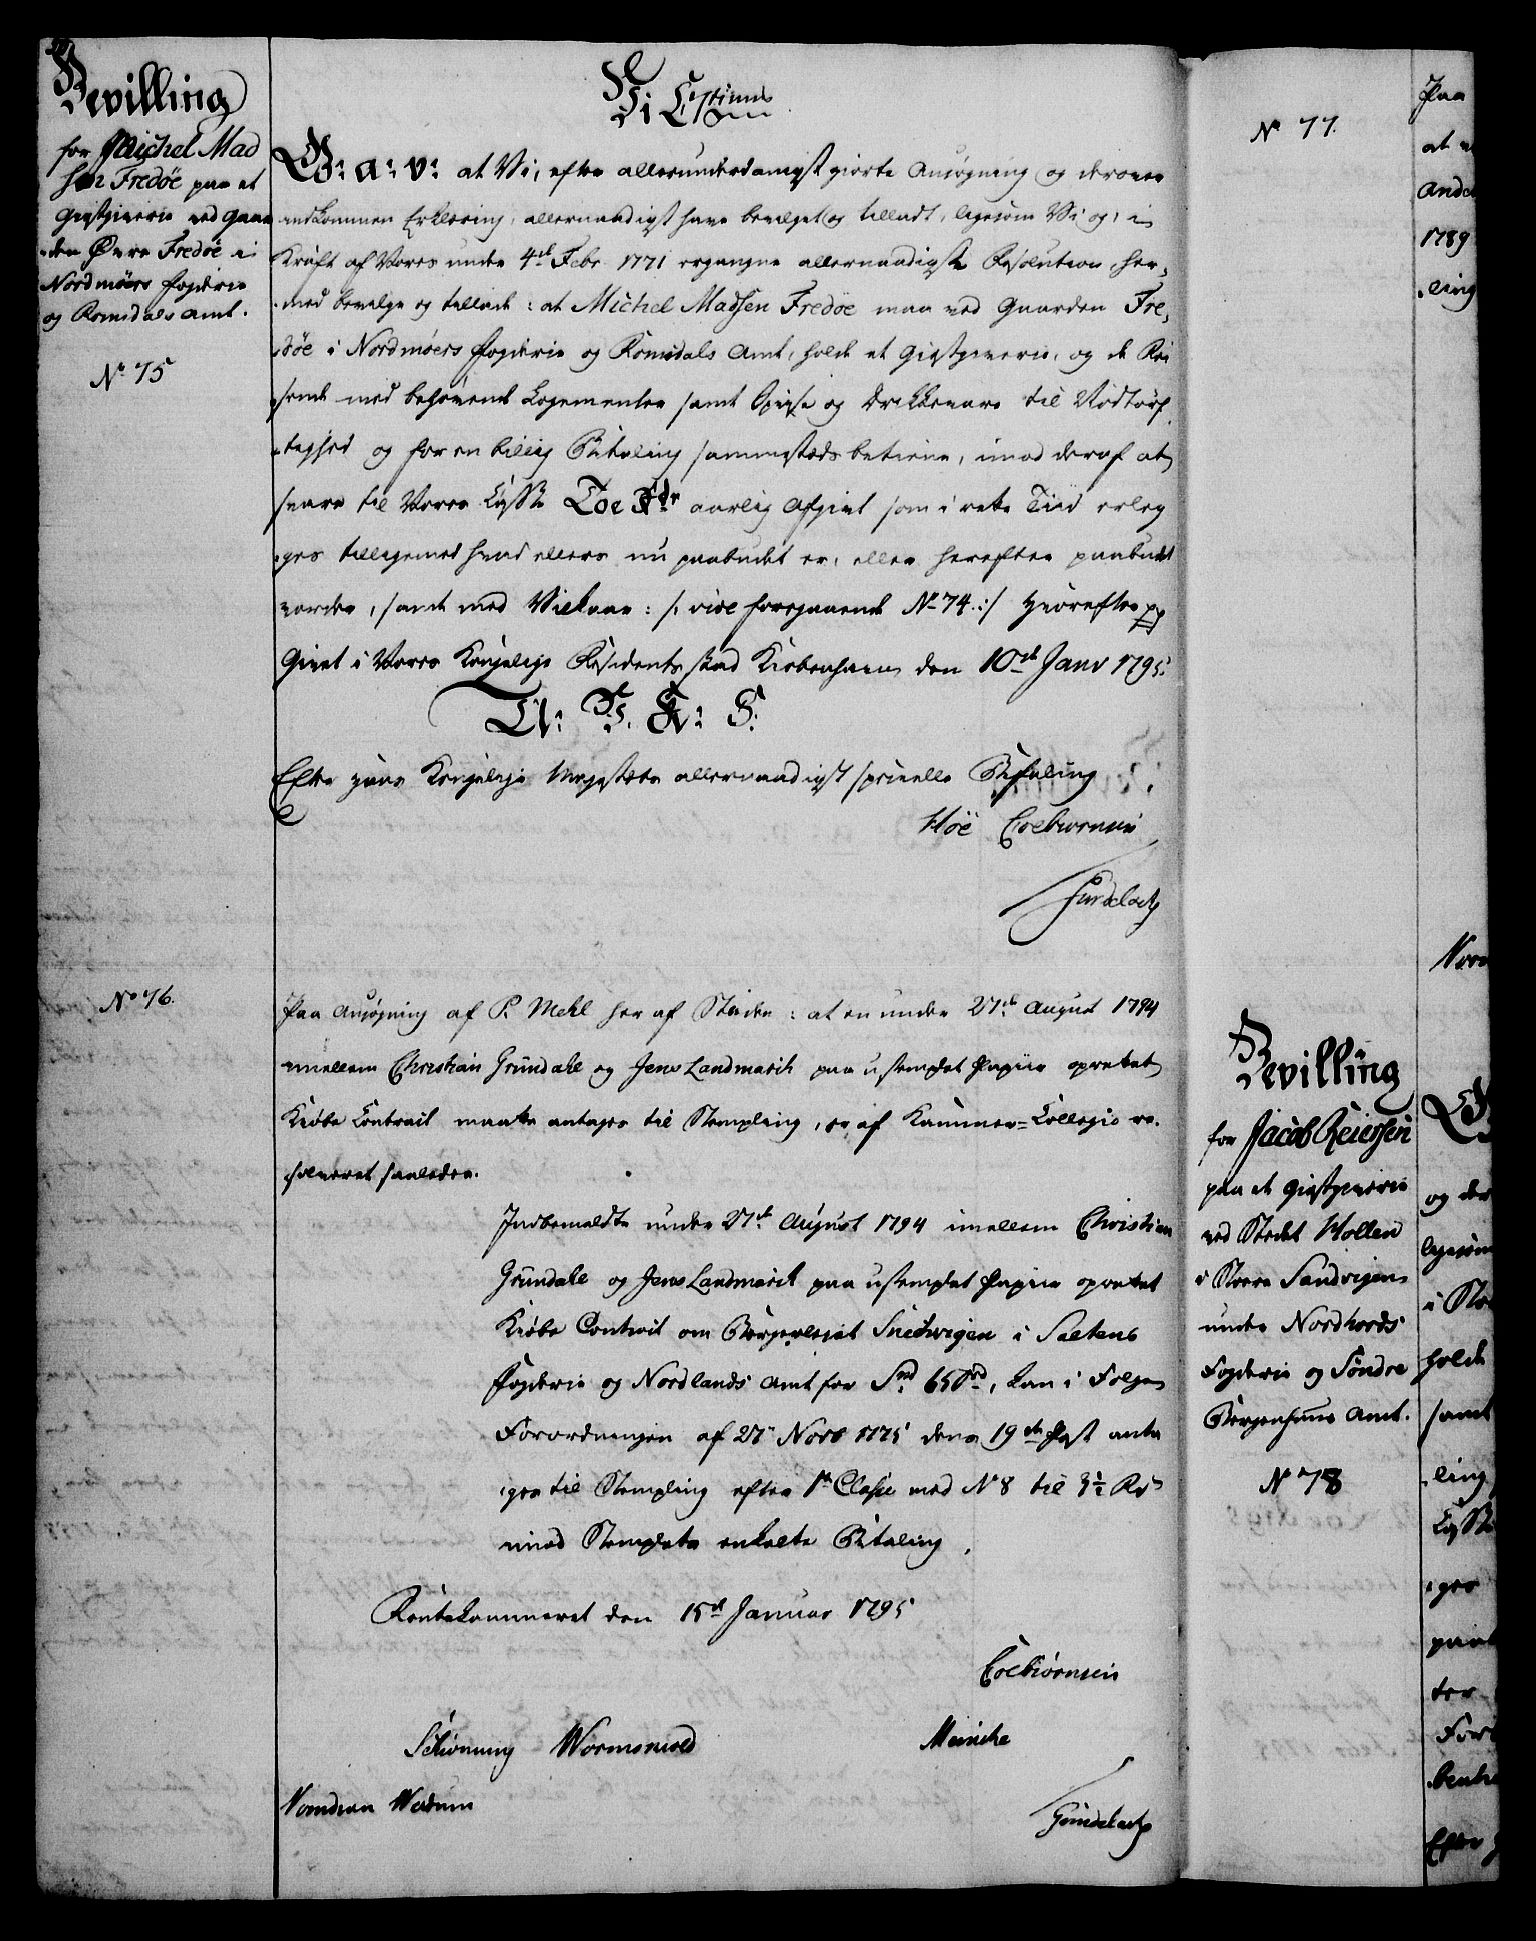 Bevilling
for Michel Mad
sen Fredöe paa et
Giestgiverie ved Gaar
den Øvre Fredöe i
Nordmøers Fogderie
og Romsdals Amt.
No 75
Vi Christian
G: a: v: at Vi, efter allerunderdanigst giorte Ansøgning og derover
indkommen Erklæring, allernaadigst have bevilget og tilladt, ligesom Vi og i
Kraft af Vores under 4de Febr 1771 ergangne allernaadigste Resolution her,
med bevilge og tillade: at Michel Madsen Fredöe maa ved Gaarden Fre,
döe i Nordmøers Fogderie og Romsdals Amt, holde et Giestgiverie, og de Rei
sende med behøvende Logementer samt Spiise og Drikkevare til Nødtørf
tighed og for en billig Betaling sammesteds betiene, imod deraf at
svare til Vores Casse Toe Rdr aarlig Afgivt som i rette Tiid erlæg
ges tilligemed hvad ellers nu paabudet er, eller herefter paabudet
vorder, samt med Vilkaar: /: vide foregaaende No 74 :/ Hvorefter pp
Givet i Vores Kongelige Residents stad Kiøbenhavn den 10de Janv 1795.
U: V. K: S:
Efter Hans Kongelige Majestæts allernaadigst specielle Befaling
Höe Colbiørnsen
Gundelach
No 76.
Paa Ansøgning af P. Mehl her af Staden: at en under 27de August 1794
imellem Christian Gründahl og Jens Landmarck paa ustemplet Papiir oprettet
Kiøbe Contract maatte antages til Stempling, er af Kammer=Collegio re
solveret saaledes.
Indbemeldte under 27de August 1794 imellem Christian
Gründahl og Jens Landmarck paa ustemplet Papiir oprettet
Kiøbe Contract om Borgerlejet Snedvigen i Saltens
Fogderie og Nordlands Amt for Sum 65 Rd, kan i Følge
Forordningen af 27 Novb 1775 dens 19de Post anta
ges til Stempling efter 1te Classe med No 8 til 3½ Rd
imod Stemplets enkelte Betaling.
Rentekammeret den 15de Januar 1795
Colbiørnsen
Schiønning Wormskiold Meincke
Vendum
Gundelach
No 77.
Bevilling
for Jacob Reiersen
paa et Giestgiverie
ved Stedet Hollen
i Store Sandvigen
under Nordhords
Fogderie og Söndre
Bergenhuus Amt.
No 78
Paa
at
Ande
1789
ling
og der
ligesom
i Sto
holde
samt
ling
Casse
ges
paab
ter
For
Efter